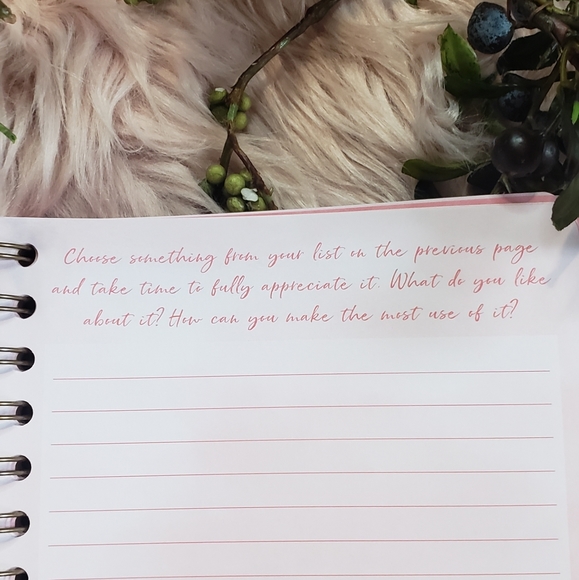 Choose something from your list on the previous page
and take time to fully appreciate it. What do you like
about it? How can you make the most use of it?